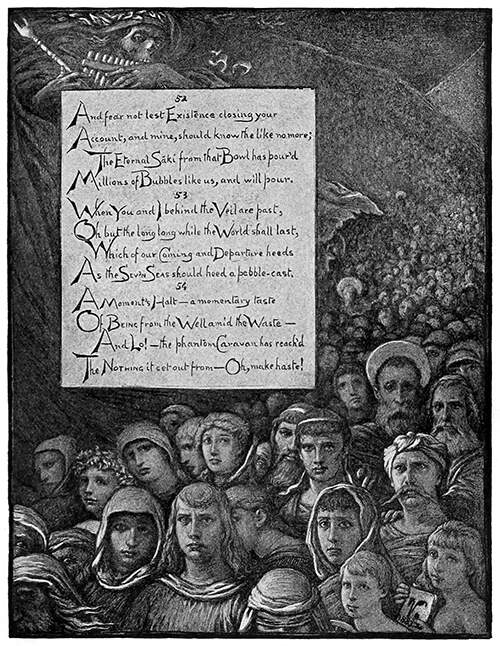 52
And fear not lest Existence closing your
Account, and mine, should know the like no more;
The Eternal Sákí from that Bowl has pour'd
Millions of Bubbles like us, and will pour.
53
When You and I behind the Veil are past,
Oh but the long long while the World shall last,
Which of our Coming and Departure heeds
As the Sev'n Seas should heed a pebble-cast.
54
A Moment's Halt—a momentary taste
Of Being from the Well amid the Waste—
And Lo!—the phantom Caravan has reach'd
The Nothing it set out from—Oh, make haste!